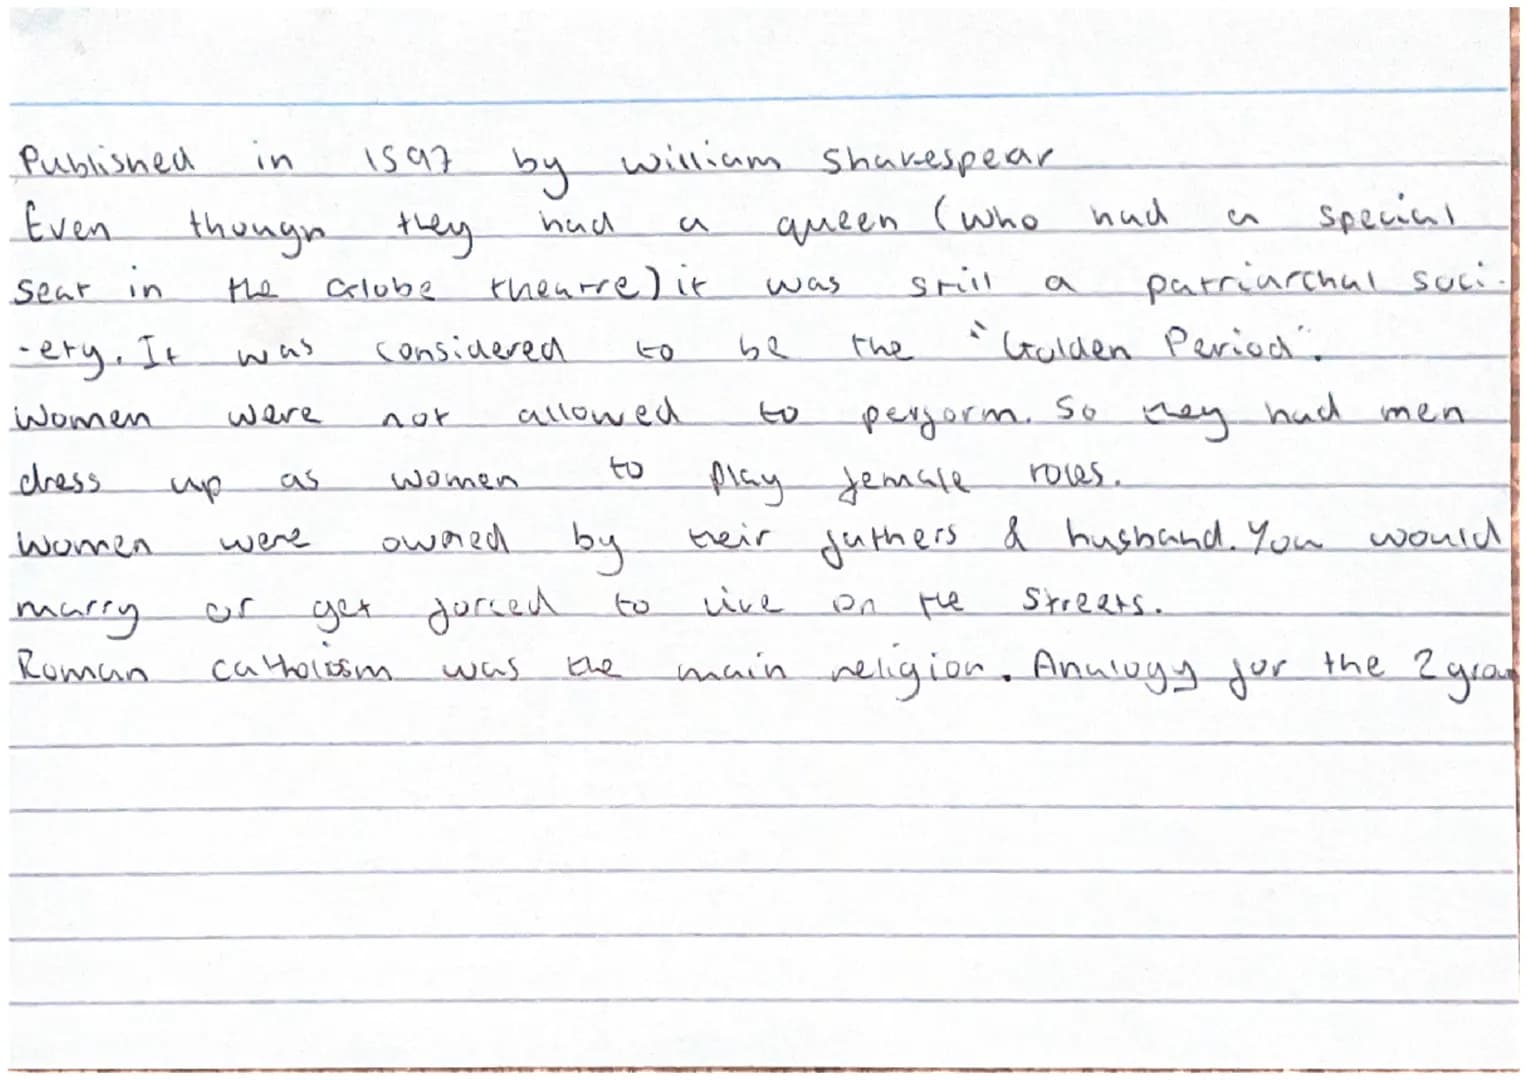 Published in 1597 by william Shakespear
Even though they had a queen (who had a special
seat in the Globe theatre) it was still a patriarchal soci-
-ety. It was considered to be the "Golden Period".
Women were not allowed to perform. So they had men
dress up as women to play female roles.
Women were owned by their fathers & husband. You would
marry or get forced to live on the streets.
Roman catholism was the main religion. Analogy for the 2